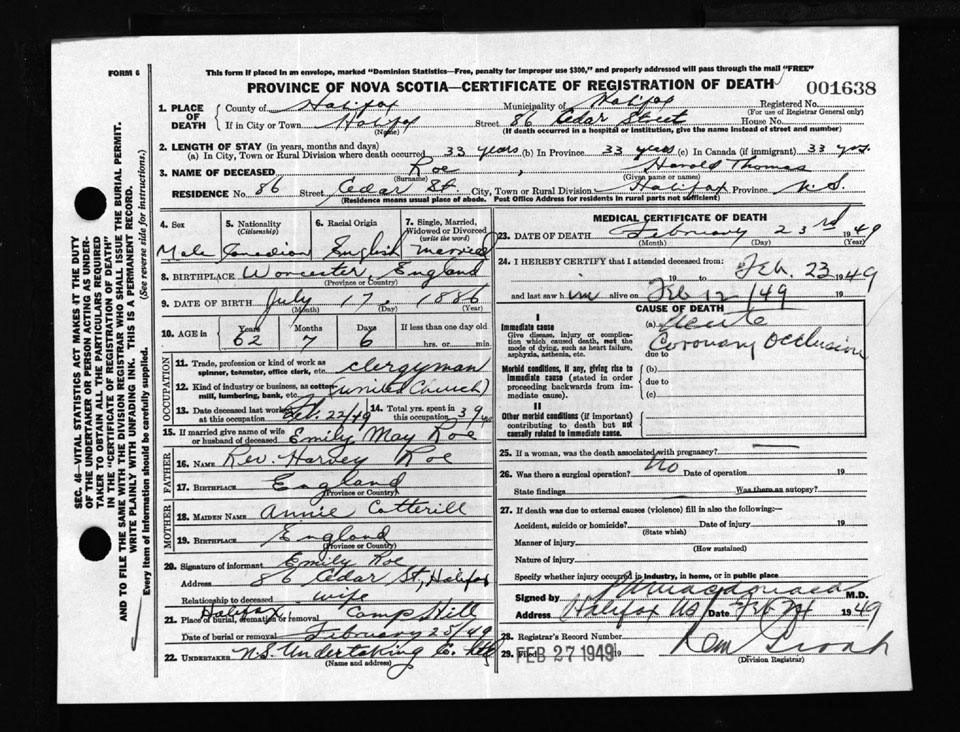 FORM 6
This form if placed in an envelope, marked "Dominion Statistics—Free, penalty for improper use $300," and properly addressed will pass through the mail "FREE"
PROVINCE OF NOVA SCOTIA—CERTIFICATE OF REGISTRATION OF DEATH
001638
1. PLACE OF DEATH
County of Halifax Municipality of Halifax Registered No.
(For use of Registrar General Only)
If in City or Town Halifax Street 86 Cedar Street House No.
(Name) (If death occurred in a hospital or institution, give the name instead of street and number)
2. LENGTH OF STAY (in years, months and days)
(a) In City, Town or Rural Division where death occurred 33 years (b) In Province 33 years (c) In Canada (if immigrant) 33 yrs.
3. NAME OF DECEASED Roe, Harold Thomas
(Surname) (Given name or names)
RESIDENCE No. 86 Street Cedar St. City, Town or Rural Division Halifax Province N.S.
(Residence means usual place of abode. Post Office Address for residents in rural parts not sufficient)
4. Sex 5. Nationality (Citizenship) 6. Racial Origin 7. Single, Married, Widowed or Divorced (write the word)
Male Canadian English Married
8. BIRTHPLACE Worcester, England
(Province or Country)
9. DATE OF BIRTH July 17, 1886
(Month) (Day) (Year)
10. AGE in Years Months Days If less than one day old
62 7 6 hrs. or min.
OCCUPATION
11. Trade, profession or kind of work as spinner, teamster, office clerk, etc. clergyman
12. Kind of industry or business, as cotton-mill, lumbering, bank, etc. (United Church)
13. Date deceased last worked at this occupation Feb. 22/49 14. Total yrs. spent in this occupation 31 yrs
15. If married give name of wife or husband of deceased Emily May Roe
FATHER
16. NAME Rev. Harvey Roe
17. BIRTHPLACE England
(Province or Country)
MOTHER
18. MAIDEN NAME Annie Cotterill
19. BIRTHPLACE England
(Province or Country)
20. Signature of informant Emily Roe
Address 86 Cedar St, Halifax
Relationship to deceased wife
21. Place of burial, cremation or removal Halifax Camp Hill
Date of burial or removal February 25/49
22. UNDERTAKER N.S. Undertaking Co. Ltd
(Name and address)
MEDICAL CERTIFICATE OF DEATH
23. DATE OF DEATH February 23rd 1949
(Month) (Day) (Year)
24. I HEREBY CERTIFY that I attended deceased from
19 to Feb. 23 1949
and last saw him alive on Feb 12/49 19
CAUSE OF DEATH
I
Immediate cause
Give disease, injury or complication which caused death, not the mode of dying, such as heart failure, asphyxia, asthenia, etc.
(a) Acute
Coronary Occlusion
due to
Morbid conditions, if any, giving rise to immediate cause (stated in order proceeding backwards from immediate cause).
(b)
due to
(c)
II
Other morbid conditions (if important) contributing to death but not causally related to immediate cause.
25. If a woman, was the death associated with pregnancy?
26. Was there a surgical operation? No Date of operation 19
State findings Was there an autopsy?
27. If death was due to external causes (violence) fill in also the following:—
Accident, suicide or homicide? Date of injury 19
(State which)
Manner of injury
(How sustained)
Nature of injury
Specify whether injury occurred in industry, in home, or in public place
Signed by M.D.
Address Halifax NS Date Feb 24 1949
28. Registrar's Record Number
29. Filed FEB 27 1949 19
(Division Registrar)
SEC. 46—VITAL STATISTICS ACT MAKES IT THE DUTY
OF THE UNDERTAKER OR PERSON ACTING AS UNDER-
TAKER TO OBTAIN ALL THE PARTICULARS REQUIRED
IN THE "CERTIFICATE OF REGISTRATION OF DEATH"
AND TO FILE THE SAME WITH THE DIVISION REGISTRAR WHO SHALL ISSUE THE BURIAL PERMIT.
WRITE PLAINLY WITH UNFADING INK. THIS IS A PERMANENT RECORD.
Every item of information should be carefully supplied. (See reverse side for instructions.)